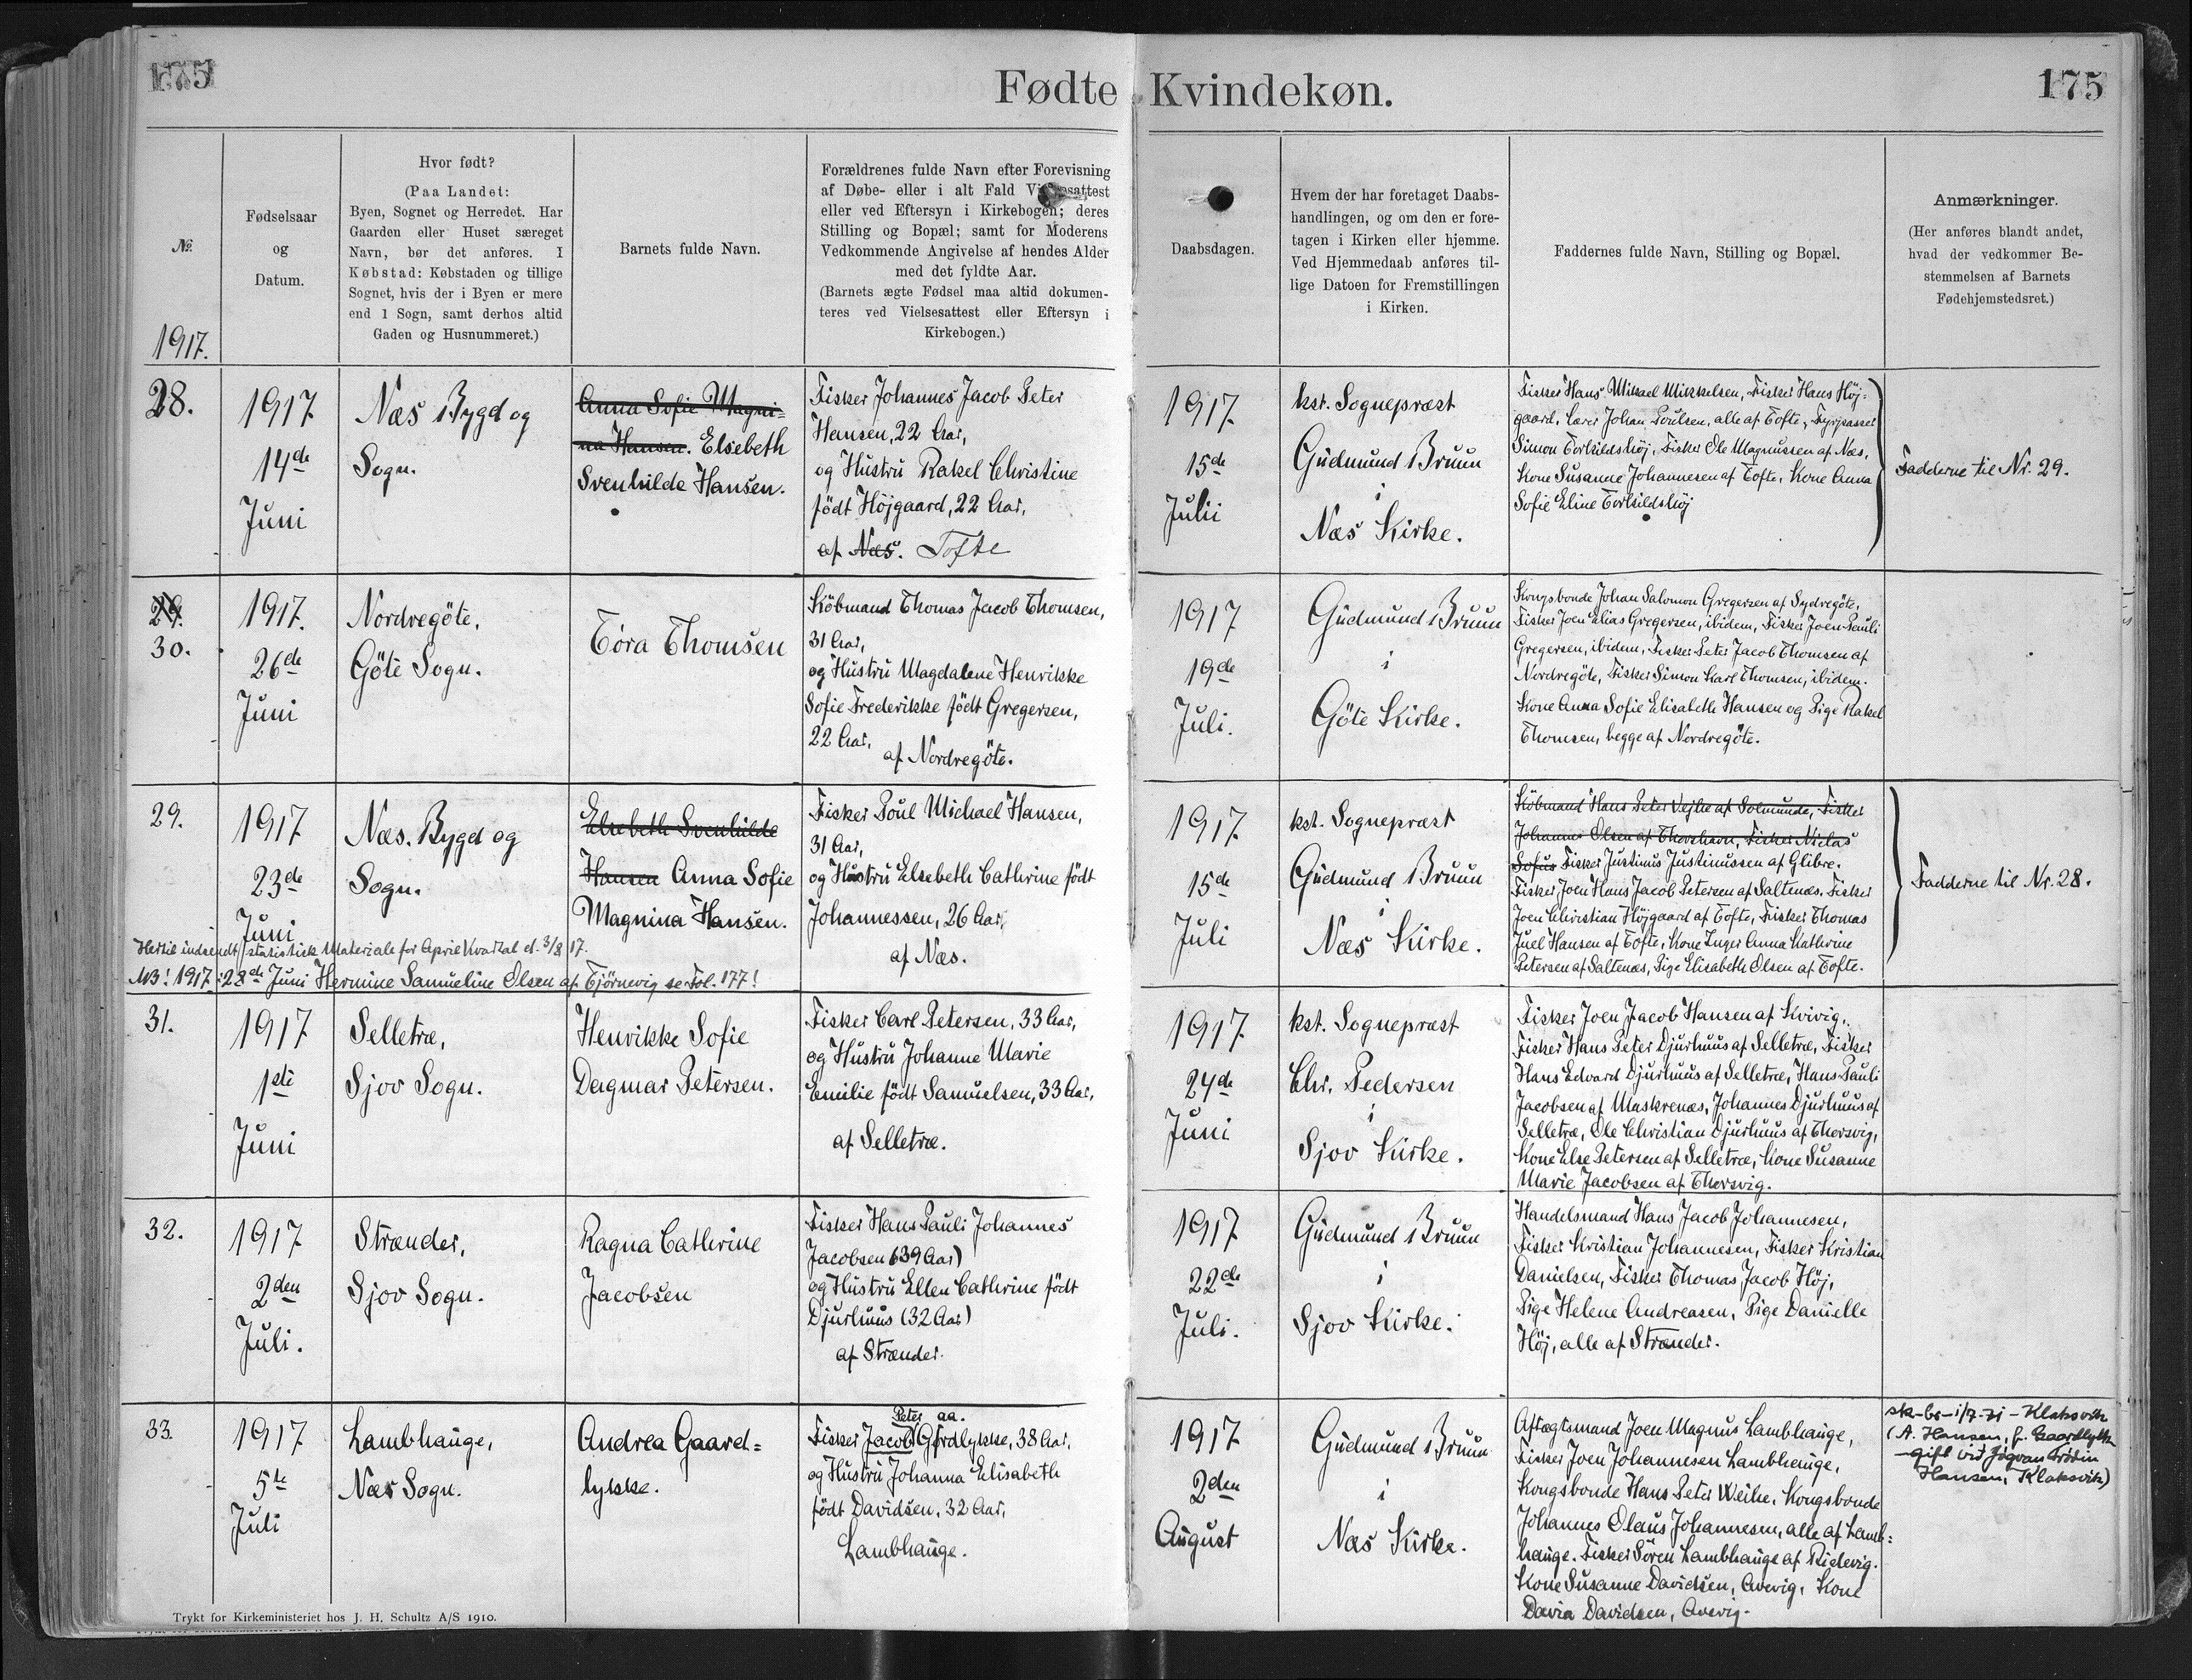 175
Fødte Kvindekøn.
175
№
1917.
Fødselsaar
og
Datum.
Hvor født?
(Paa Landet:
Byen, Sognet og Herredet. Har
Gaarden eller Huset særeget
Navn, bør det anføres. I
Købstad: Købstaden og tillige
Sognet, hvis der i Byen er mere
end 1 Sogn, samt derhos altid
Gaden og Husnummeret.)
Barnets fulde Navn.
Forældrenes fulde Navn efter Forevisning
af Døbe- eller i alt Fald Vielsesattest
eller ved Eftersyn i Kirkebogen; deres
Stilling og Bopæl; samt for Moderens
Vedkommende Angivelse af hendes Alder
med det fyldte Aar.
(Barnets ægte Fødsel maa altid dokumen-
teres ved Vielsesattest eller Eftersyn i
Kirkebogen.)
Daabsdagen.
Hvem der har foretaget Daabs-
handlingen, og om den er fore-
tagen i Kirken eller hjemme.
Ved Hjemmedaab anføres til-
lige Datoen for Fremstillingen
i Kirken.
Faddernes fulde Navn, Stilling og Bopæl.
Anmærkninger.
(Her anføres blandt andet,
hvad der vedkommer Be-
stemmelsen af Barnets
Fødehjemstedsret.)
28.
1917
14de
Juni
Næs Bygd og
Sogn.
Anna Sofie Magni=
na Hansen. Elsebeth
Svenhilda Hansen.
Fisker Johannes Jacob Peter
Hansen, 22 Aar,
og Hustrü Rakel Christine
födt Höjgaard, 22 Aar,
af Næs. Tofte
1917.
15de
Julii
kst. Sognepræst
Güdmünd Bruun
i
Næs Kirke.
Fisker Hans Mikael Mikkelsen, Fisker Hans Höj=
gaard, Lærer Johan Poulsen, alle af Tofte, Fyrpasser
Simon Torkildshöj, Fisker Ole Magnussen af Næs,
Kone Susanne Johannesen af Tofte, Kone Anna
Sofie Eline Torkildshöj
Fadderne til Nr. 29.
29.
30.
1917.
26de
Juni
Nordregöte,
Göte Sogn.
Tóra Thomsen
Köbmand Thomas Jacob Thomsen,
31 Aar,
og Hustrü Magdalene Henrikke
Sofie Frederikke födt Gregersen,
22 Aar,
af Nordregöte.
1917
19de
Juli.
Güdmünd Bruun
i
Göte Kirke.
Kongsbonde Johan Salomon Gregersen af Sydregöte,
Fisker Joen Elias Gregersen, ibidem, Fisker Joen Pauli
Gregersen, ibidem, Fisker Peter Jacob Thomsen af
Nordregöte, Fisker Simon Karl Thomsen, ibidem.
Kone Anna Sofie Elisabeth Hansen og Pige Rakel
Thomsen, begge af Nordregöte.
29.
1917
23de
Juni
Næs. Bygd og
Sogn.
Elsebeth Svenhilde
Hansen Anna Sofie
Magnina Hansen.
Fisker Poul Michael Hansen,
31 Aar,
og Hustrü Elsebeth Cathrine födt
Johannessen, 26 Aar,
af Næs.
1917.
15de
Juli
kst. Sognepræst
Güdmünd Bruun
i
Næs Kirke.
Köbmand Hans Peter Vejhe af Solmunde, Fisker
Johannes Olsen af Thorshavn, Fisker Niclas
Sofus Fisker Justinus Justinussen af Glibre.
Fisker Joen Hans Jacob Petersen af Saltenæs, Fisker
Joen Christian Höjgaard af Tofte, Fisker Thomas
Juel Hansen af Tofte, Kone Inger Anna Kathrine
Petersen af Saltenæs, Pige Elisabeth Olsen af Tofte.
Fadderne til Nr. 28.
Hertil indsendt statistisk Materiale for April Kvartal d. 3/8 17.
NB! 1917: 28de Juni Hermine Samueline Olsen af Tjørnevig se Fol. 177!
31.
1917
1ste
Juni
Selletræ,
Sjov Sogn.
Henrikke Sofie
Dagmar Petersen.
Fisker Carl Petersen, 33 Aar,
og Hustrü Johanne Marie
Emilie födt Samuelsen, 33 Aar,
af Selletræ.
1917.
24de
Juni
kst. Sognepræst
Chr. Pedersen
i
Sjov Kirke.
Fisker Joen Jacob Hansen af Kvivig,
Fisker Hans Peter Djurhuus af Selletræ, Fisker
Hans Edvard Djurhuus af Selletræ, Hans Pauli
Jacobsen af Maskrenæs, Johannes Djurhuus af
Selletræ, Ole Christian Djurhuus af Thorsvig,
Kone Else Petersen af Selletræ, Kone Susanne
Marie Jacobsen af Thorsvig.
32.
1917
2den
Juli.
Strænder,
Sjov Sogn.
Ragna Cathrine
Jacobsen
Fisker Hans Pauli Johannes
Jacobsen (39 Aar)
og Hustrü Ellen Cathrine födt
Djurhuus (32 Aar)
af Strænder.
1917.
22de
Juli.
Güdmünd Bruun
i
Sjov Kirke.
Handelsmand Hans Jacob Johannesen,
Fisker Kristian Johannesen, Fisker Kristian
Danielsen, Fisker Thomas Jacob Höj,
Pige Helene Andreasen, Pige Danielle
Höj, alle af Strænder.
33.
1917
5te
Juli
Lambhauge,
Næs Sogn.
Andrea Gaard=
lykke.
Peter aa.
Fisker Jacob Gördlykke, 38 Aar,
og Hustrü Johanna Elisabeth
födt Davidsen, 32 Aar,
Lambhauge.
1917.
2den
August
Güdmünd Bruun
i
Næs Kirke.
Aftægtsmand Joen Magnus Lambhauge,
Fisker Joen Johannesen Lambhauge,
Kongsbonde Hans Peter Weihe, Kongsbonde
Johannes Olaus Johannesen, alle af Lamb=
hauge. Fisker Sören Lambhauge af Ridevig.
Kone Susanne Davidsen, Avevig, Kone
Davia Davidsen, Avevig.
sk-br-1/7-71 - Klaksvik
(A. Hansen, f. Gaardlykke
gift við Jógvan
Hansen, Klaksvik)
Trykt for Kirkeministeriet hos J. H. Schultz A/S 1910.